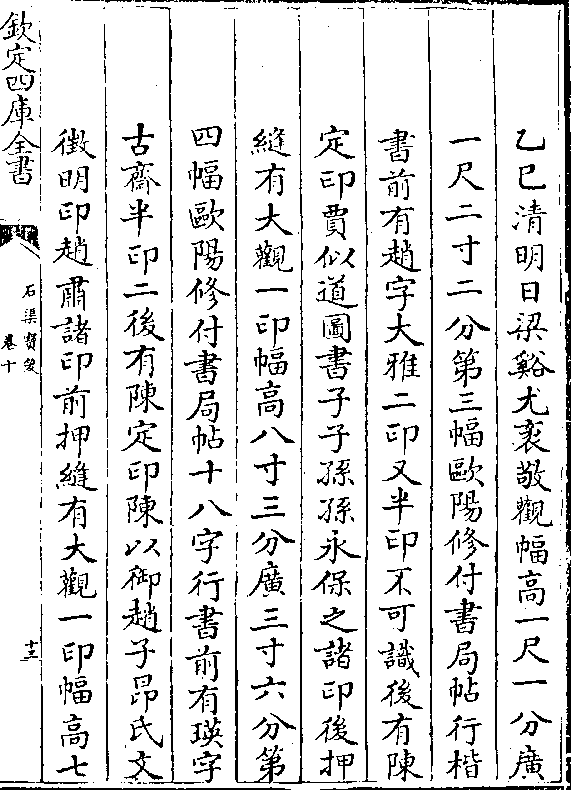 乙巳清明日梁谿尤袤敬觀幅高一尺一分廣
一尺二寸二分第三幅歐陽修付書局帖行楷
書前有趙字大雅二印又半印不可識後有陳
定印賈似道圖書子子孫孫永保之諸印後押
縫有大觀一印幅高八寸三分廣三寸六分第
四幅歐陽修付書局帖十八字行書前有瑛字
古齋半印二後有陳定印陳以御趙子昂氏文
徴明印趙肅諸印前押縫有大觀一印幅高七
欽定四庫全書
石渠寳笈
卷十
十三